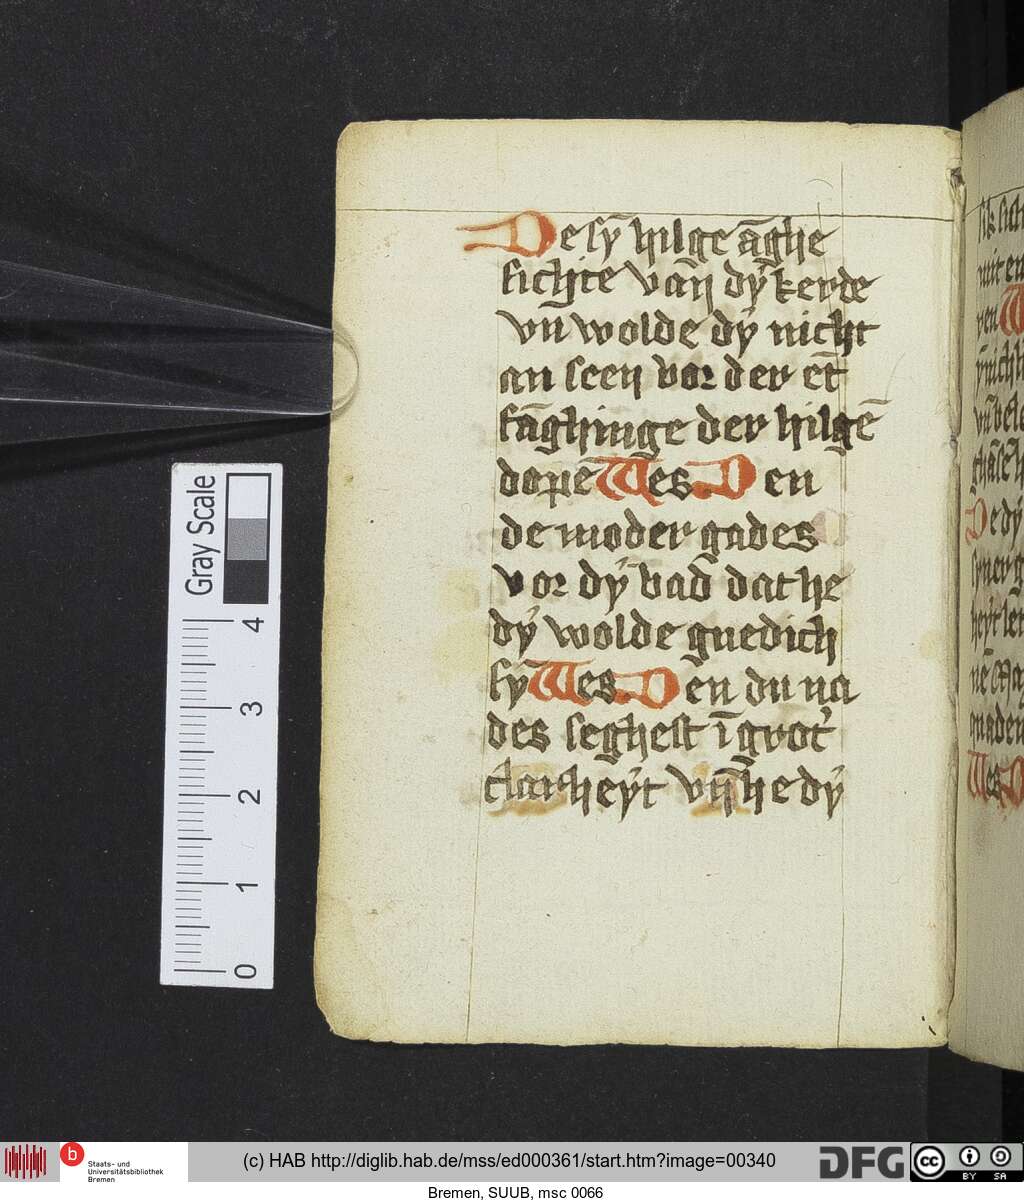 De sẏ̄ hilge āghe
sichte van̄ dẏ kerde
vn̄ wolde dẏ nicht
an seen vor der ēt
fāghinge der hilgē
dope Wes D en
de moder gades
vor dẏ bad dat he
dẏ wolde gnedich
sẏ Wes D en du na
des seghest ī grot'
clarheẏt vn̄ he dẏ
Gray Scale
4
3
2
1
0
b
Staats- und
Universitätsbibliothek
Bremen
(c) HAB http://diglib.hab.de/mss/ed000361/start.htm?image=00340
DFG
cc
BY SA
Bremen, SUUB, msc 0066